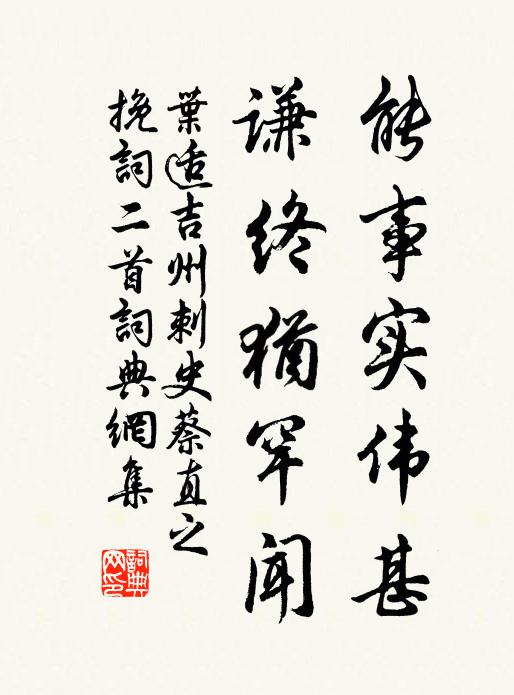 能事实伟甚
谦终犹罕闻
葉适吉州刺史蔡直之
挽詞二首詞典網集
詞典
网印